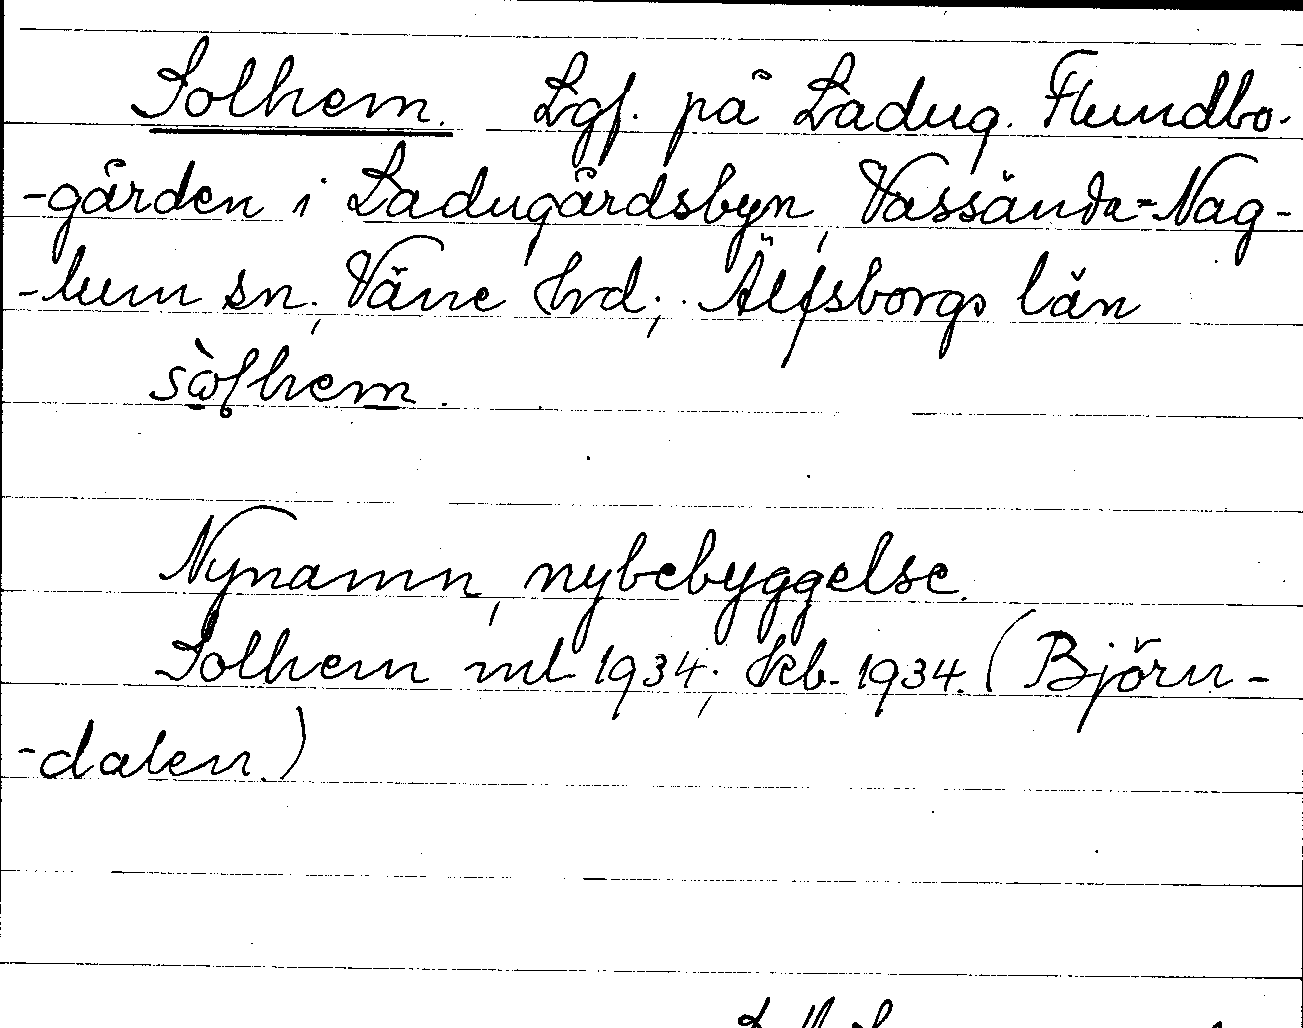 Solhem. Lgf. på Ladug. Flundbo-
-gården i Ladugårdsbyn, Vassända-Nag-
-lum sn, Väne hrd; Älfsborgs län
Nynamn, nybebyggelse.
Solhem ml 1934; kb. 1934. (Björn-
-dalen.)